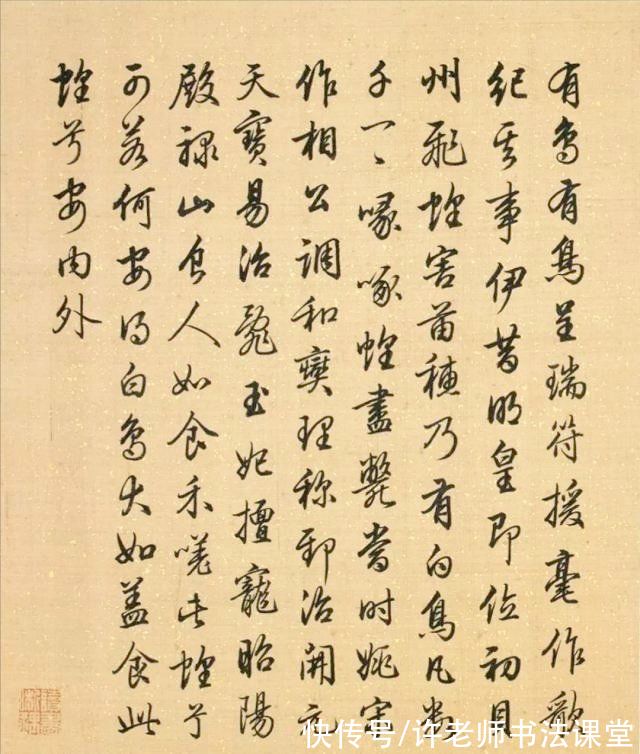 有鳥有鳥呈瑞符援毫作歌
紀其事伊昔明皇即位初貝
州飛蝗害苗穗乃有白鳥凡
千一一喙啄蝗盡斃當時姚宋
作相公調和燮理称郅治開元
天寶易治亂玉妃擅寵昭陽
殿祿山食人如食禾嗟此蝗兮
可若何安得白鳥大如蓋食此
蝗兮安内外
快传号/许老师书法课堂